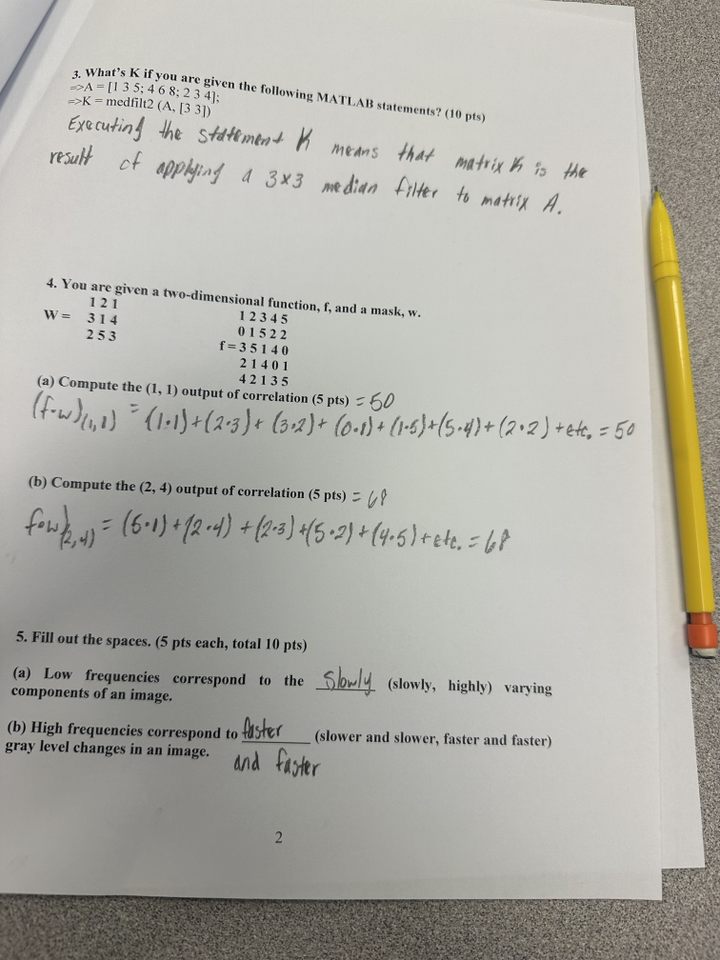 3. What's K if you are given the following MATLAB statements? (10 pts)
=>A = [1 3 5; 4 6 8; 2 3 4];
=>K = medfilt2 (A, [3 3])
Executing the statement K means that matrix K is the
result of applying a 3x3 median filter to matrix A.
4. You are given a two-dimensional function, f, and a mask, w.
1 2 1
W = 3 1 4
2 5 3
1 2 3 4 5
0 1 5 2 2
f = 3 5 1 4 0
2 1 4 0 1
4 2 1 3 5
(a) Compute the (1, 1) output of correlation (5 pts) = 50
(f∘w)(1,1) = (1·1)+(2·3)+(3·2)+(0·1)+(1·5)+(5·4)+(2·2)+etc. = 50
(b) Compute the (2, 4) output of correlation (5 pts) = 68
f∘w)(2,4) = (5·1)+(2·4)+(2·3)+(5·2)+(4·5)+etc. = 68
5. Fill out the spaces. (5 pts each, total 10 pts)
(a) Low frequencies correspond to the Slowly (slowly, highly) varying
components of an image.
(b) High frequencies correspond to faster (slower and slower, faster and faster)
gray level changes in an image. and faster
2